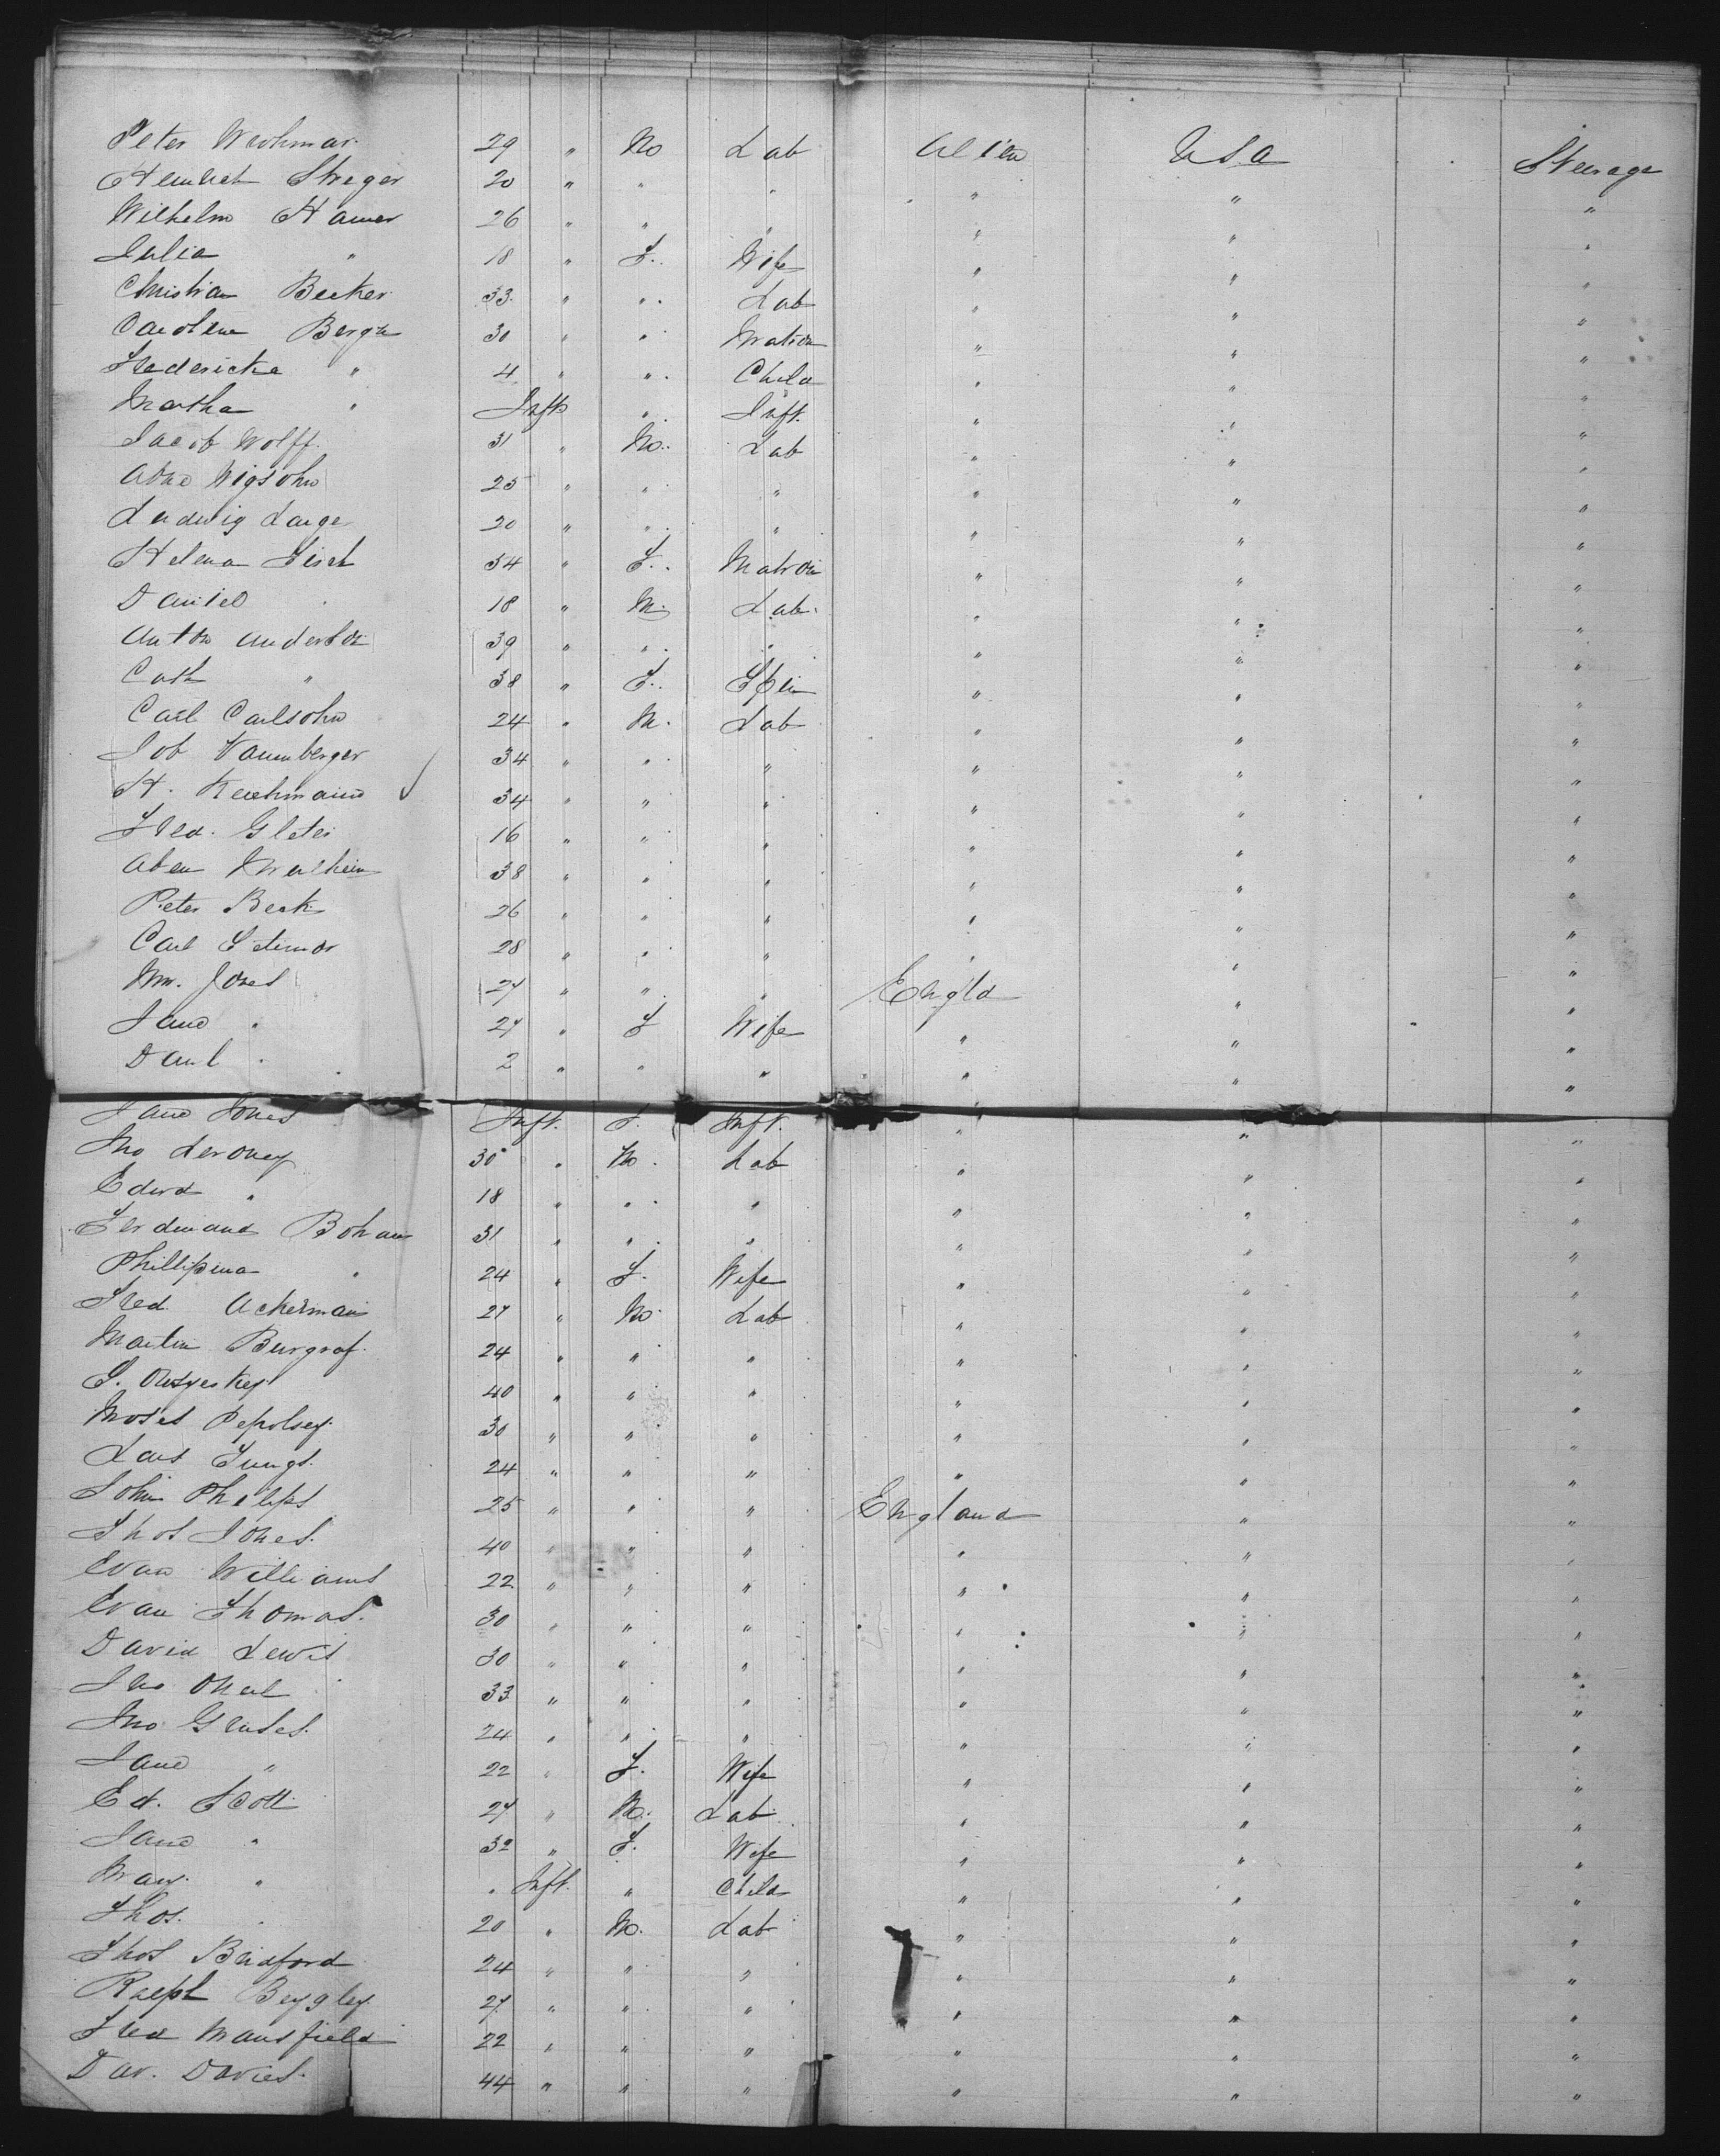 Peter 29 " M Lab Alien USA Steerage
20 " " " " " "
Wilhelm Hamer 26 " " " " " "
Julia " 18 " F. Wife " " "
Christian Becker 33 " " Lab " " "
Caroline 30 " " Matron " " "
Fredericke " 4 " " Child " " "
Martha " Inft " Inft. " " "
Jacob Wolff. 31 " M. Lab " " "
25 " " " " " "
Ludwig Lange 20 " " " " " "
Helena 54 " F. Matron " " "
Daniel 18 " M. Lab. " " "
Anton 39 " " " " " "
Cath " 38 " F. Spin " " "
Carl Carlsohn 24 " M. Lab " " "
Job 34 " " " " " "
H. 34 " " " " " "
Fred. 16 " " " " " "
38 " " " " " "
Peter Beck 26 " " " " " "
Carl 28 " " " " " "
Wm. Jones 27 " " " Engld " "
Jane " 27 " F Wife " " "
Danl " 2 " " " " " "
Jane Jones Inft. F. Inft. " " "
Jno 30 " M. Lab " " "
Edwd " 18 " " " " " "
Ferdinand Boham 31 " " " " " "
Phillipina " 24 " F. Wife " " "
Fred. Ackerman 27 " M. Lab " " "
Martin Burgraf. 24 " " " " " "
40 " " " " " "
Moses 30 " " " " " "
Lars 24 " " " " " "
John Phelips 25 " " " England " "
Thos Jones. 40 " " " " " "
Evan Williams 22 " " " " " "
Evan Thomas. 30 " " " " " "
David Lewis 30 " " " " " "
Jno ONeal 33 " " " " " "
Jno 24 " " " " " "
Jane " 22 " F. Wife " " "
Ed. Scott 27 " M. Lab " " "
Jane " 32 " F. Wife " " "
Mary. " " Inft. " Child " " "
Thos. " 20 " M. Lab " " "
Thos 24 " " " " " "
Ralph 27 " " " " " "
Fred Mansfield 22 " " " " " "
Dav. Davies. 44 " " " " " "